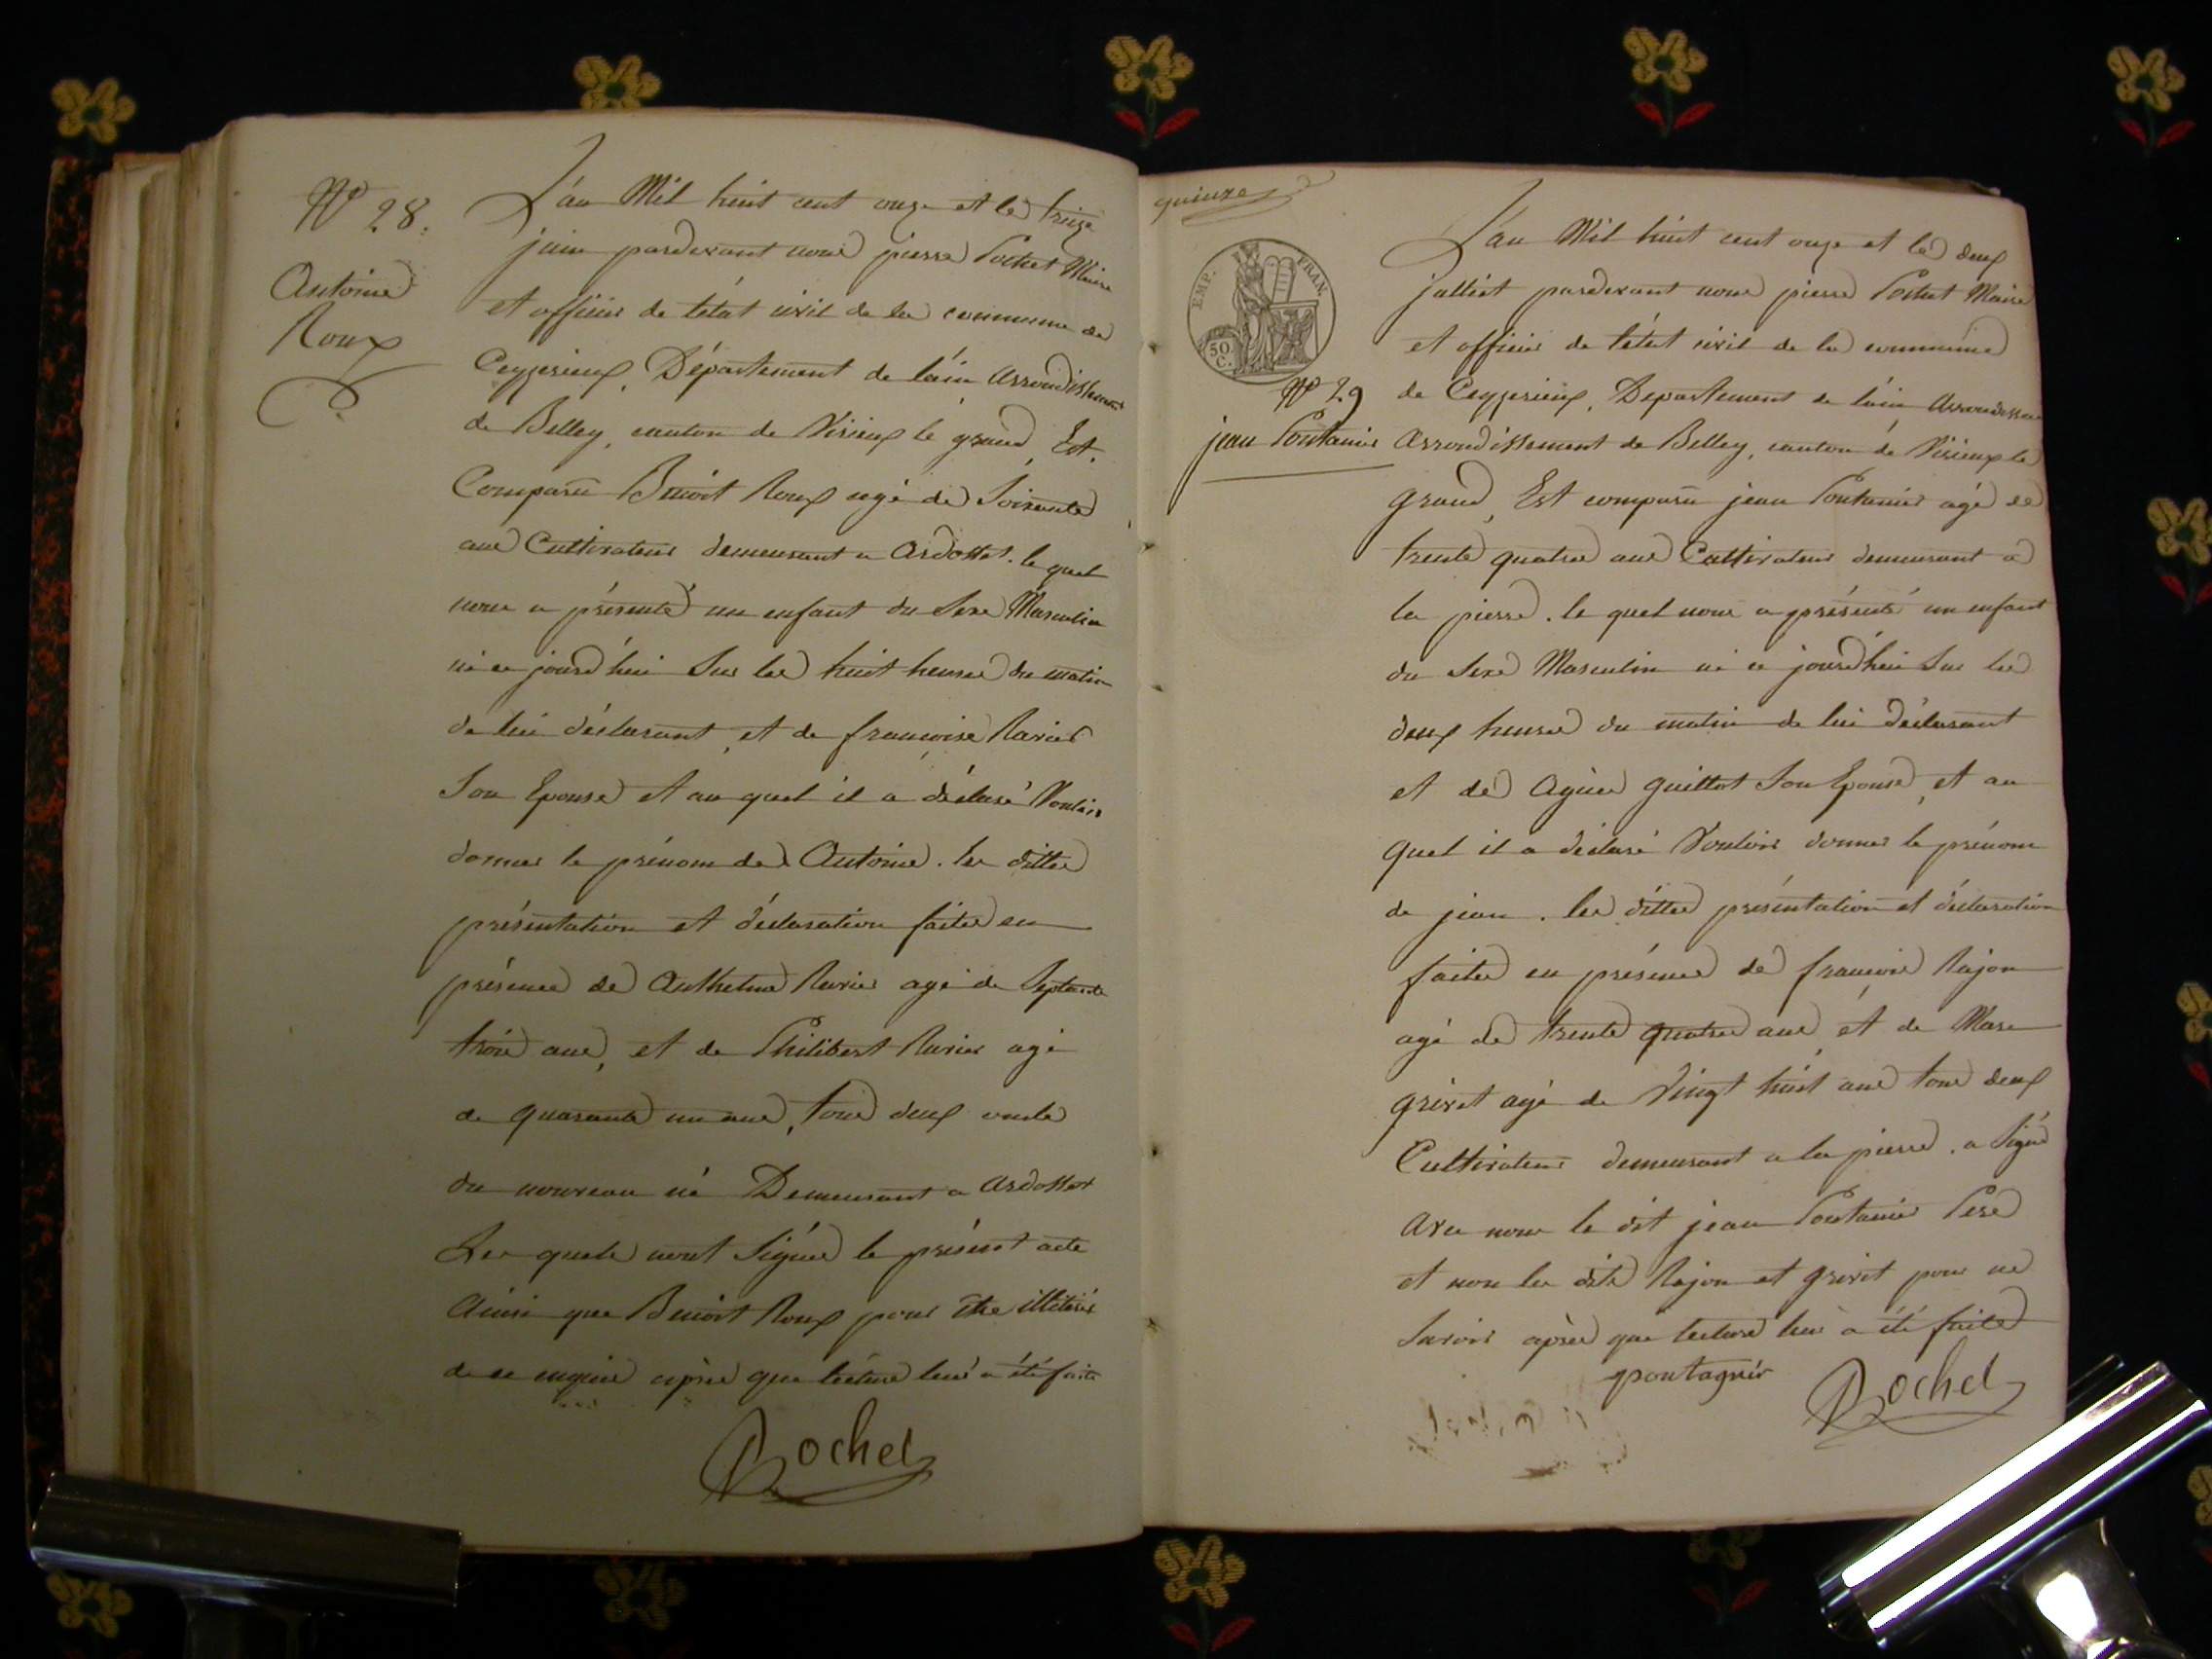 N° 28.
Antoine
Roux
L'an Mil huit cent onze et le treize
juin pardevant nous pierre Pochet Maire
et officier de l'état civil de la commune de
Ceyzerieux, Département de l'ain Arrondissement
de Belley, canton de Virieux le grand, Est.
Comparu Benoit Roux agé de Soixante
ans Cultivateur demeurant a Ardosset. le quel
nous a présenté un enfant du Sexe Masculin
né ce jourd'hui Sur les huit heures du matin
de lui déclarant, et de francoise Ravier
Son Epouse et au quel il a déclaré Vouloir
donner le prénom de Antoine. les dittes
présentation et déclaration faites en
présence de Anthelme Ravier agé de Septante
trois ans, et de Philibert Ravier agé
de quarante un ans, tous deux oncle
du nouveau né Demeurant a Ardosset
Les quels n'ont Signés le présent acte
Ainsi que Benoit Roux pour être illitérés
de ce enquis après que lecture leur a été faite
Pochet
quinze
EMP. FRAN.
50 C.
N° 29
jean Pontanier
L'an Mil huit cent onze et le deux
julliet pardevant nous pierre Pochet Maire
et officier de l'état civil de la commune
de Ceyzerieux, Departement de l'ain Arrondissem
Arrondissement de Belley, canton de Virieux le
grand, Est comparu jean Pontanier agé de
trente quatre ans Cultivateur demeurant a
la pierre. le quel nous a présenté un enfant
du Sexe Masculin né ce jourd'hui Sur les
deux heures du matin de lui déclarant
et de Agnès guillot Son Epouse, et au
quel il a déclaré Vouloir donner le prénom
de jean. les dittes présentation et déclaration
faites en présence de francois Rajon
agé de trente quatre ans, et de Marc
grivet agé de Vingt huit ans tous deux
Cultivateurs demeurant a la pierre. a Signé
avec nous le dit jean Pontanier Pere
et non les dits Rajon et grivet pour ne
Savoir après que lecture leur a été faite
pontagnier
Pochet